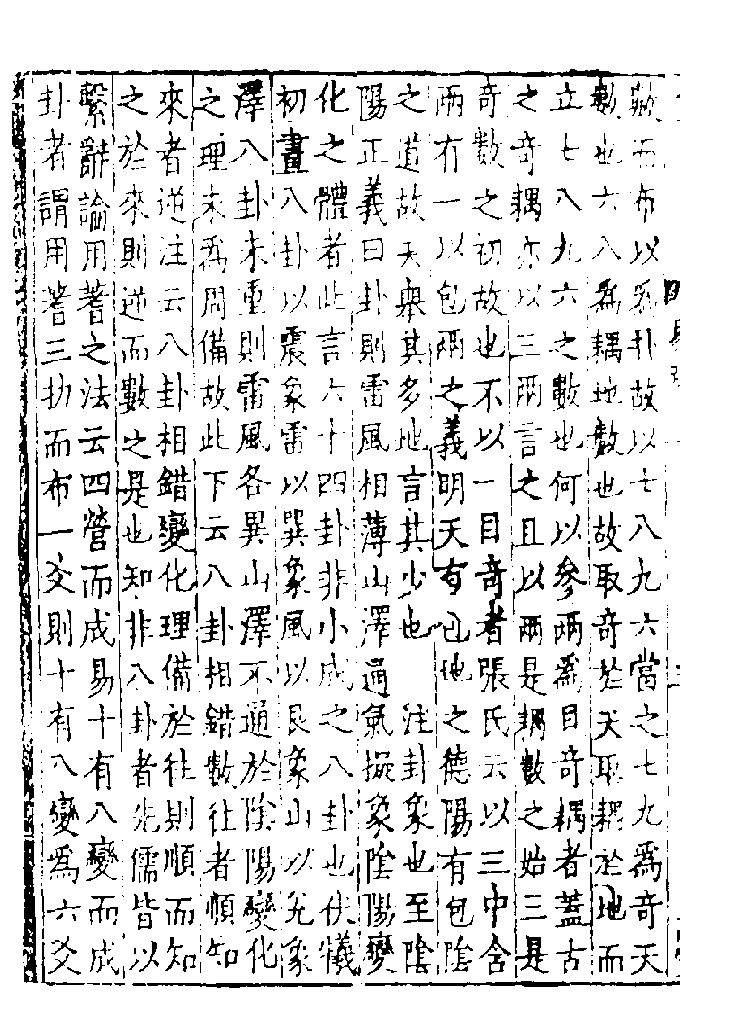 數而布以爲卦故以七八九六當之七九爲奇天
數也六八爲耦地數也故取奇於天取耦於地而
立七八九六之數也何以參兩爲目奇耦者蓋古
之奇耦亦以三兩言之且以兩是耦數之始三是
奇數之初故也不以一目奇者張氏云以三中含
兩有一以包兩之義明天有包地之德陽有包陰
之道故天舉其多地言其少也 注卦象也至陰
陽正義曰卦則雷風相薄山澤通氣擬象陰陽變
化之體者此言六十四卦非小成之八卦也伏犧
初畫八卦以震象雷以巽象風以艮象山以兌象
澤八卦未重則雷風各異山澤不通於陰陽變化
之理未爲周備故此下云八卦相錯數往者順知
來者逆注云八卦相錯變化理備於往則順而知
之於來則逆而數之是也知非八卦者先儒皆以
繫辭論用蓍之法云四營而成易十有八變而成
卦者謂用蓍三扐而布一爻則十有八變爲六爻